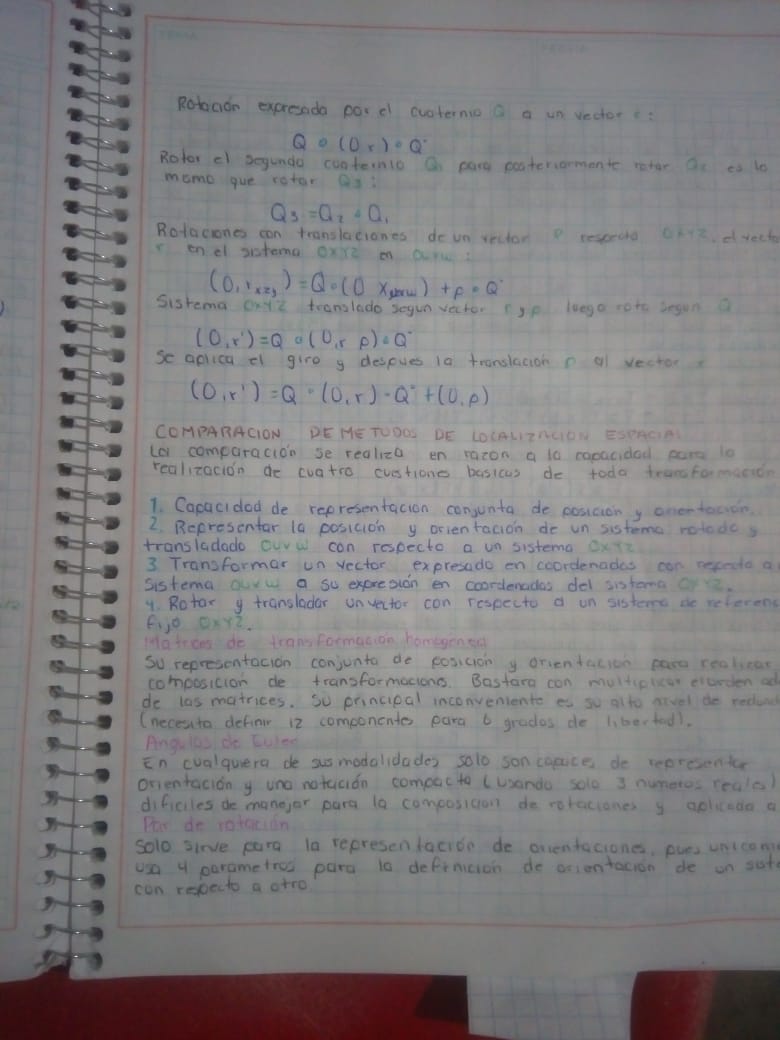 TEMA
FECHA
Rotación expresada por el cuaternio Q a un vector r:
Q ∘ (0, r) ∘ Q*
Rotar el segundo cuaternio Q1 para posteriormente rotar Q2 es lo
mismo que rotar Q3:
Q3 = Q2 ∘ Q1
Rotaciones con translaciones de un vector P respecto OXYZ, el vecto
r en el sistema OXYZ en OUVW:
(0, rxzy) = Q∘(0 xuvw) + p ∘ Q*
Sistema OXYZ translado segun vector r y p luego rota segun Q
(0, r') = Q ∘ (0, r p) ∘ Q*
Se aplica el giro y despues la translación p al vector r
(0, r') = Q ∘ (0, r) ∘ Q* + (0, p)
COMPARACION DE METODOS DE LOCALIZACION ESPACIAL
La comparación se realiza en razon a la capacidad para la
realización de cuatro cuestiones basicas de toda transformación
1. Capacidad de representacion conjunta de posición y orientación.
2. Representar la posición y orientación de un sistema rotado y
transladado OUVW con respecto a un sistema OXYZ
3 Transformar un vector expresado en coordenadas con respecto a
Sistema OUVW a su expresión en coordenadas del sistema OXYZ.
4. Rotar y transladar un vector con respecto a un sistema de referenc
fijo OXYZ.
Matrices de transformación homogenea
Su representación conjunta de posición y orientación para realizar
composición de transformaciones. Bastara con multiplicar el orden ad
de las matrices. Su principal inconveniente es su alto nivel de redund
(necesita definir 12 componentes para 6 grados de libertad).
Angulos de Euler
En cualquera de sus modalidades solo son capaces de representar
orientación y una notación compacta (usando solo 3 numeros reales)
dificiles de manejar para la composicion de rotaciones y aplicada a
Par de rotación
Solo sirve para la representación de orientaciones, pues unicam
usa 4 parametros para la definición de orientación de un
con respecto a otro.